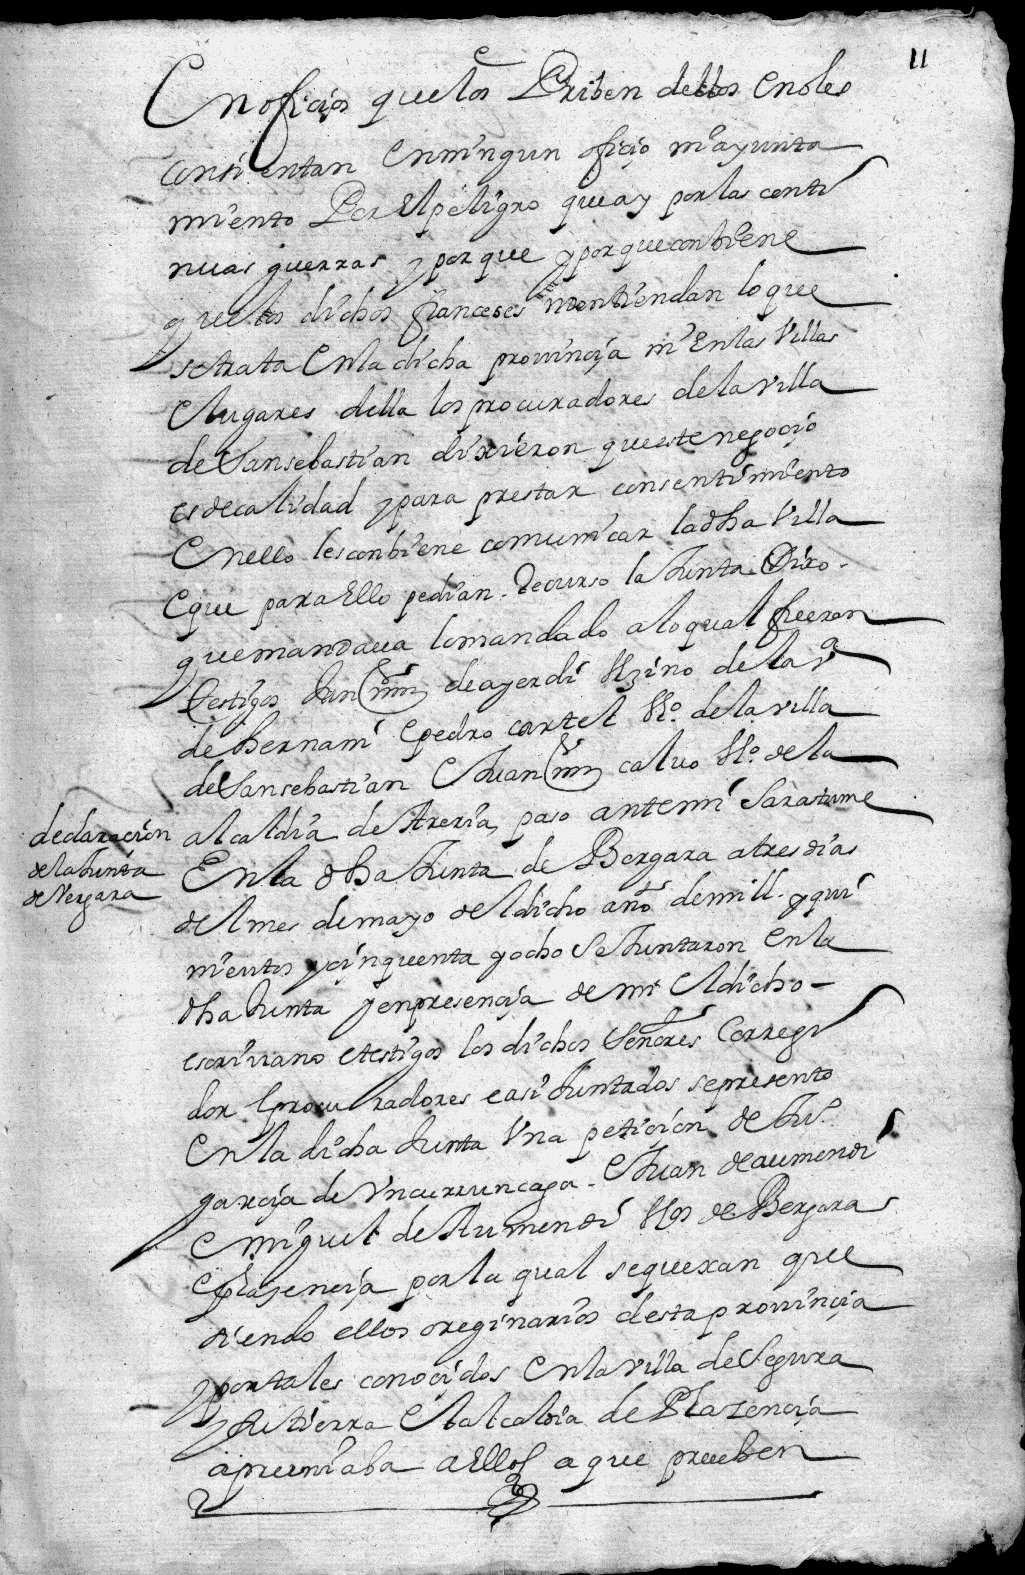 11
En ofiçios que los Priben dellos e no les
consientan en ningun ofiçio ni ayunta
miento Por El peligro que ay por las conti
nuas guerras y por que y porque conbiene
que los dichos françeses no entiendan lo que
se trata En la dicha provinçia ni En las Villas
e lugares della los procuradores de la villa
de Sansebastian dixieron que este negoçio
es de calidad y para prestar consentimiento
En ello les conbiene comunicar la dha Villa
e que para Ello pedian Recurso la Junta Dixo
que mandava lo mandado a lo qual fueron
testigos Juan de ayerdi Vzino de la va
de hernani e pedro cartel Vo. de la villa
de Sansebastian e Juan calvo Vo. de la
alcaldia de Areria paso ante mi Sarastume
declaraçion
de la Junta
de Vergara
En la dha Junta de Bergara a tres dias
del mes de mayo del dicho año de mill y qui
nientos y çinquenta y ocho Se Juntaron En la
dha Junta y en presençia de mi El dicho
escrivano e testigos los dichos Señores Corregi
dor e procuradores e asi Juntados se presento
En la dicha Junta Vna petiçion de Ju.
garçia de Vncurruncaga e Juan de aumendi
e miguel de Aumendi Vos de Bergara
e plasençia por la qual se quexan que
siendo ellos oreginarios desta provinçia
y por tales conoçidos En la villa de Segura
y su tierra El alcaldia de Plazençia
apremiaba a Ellos a que prueben